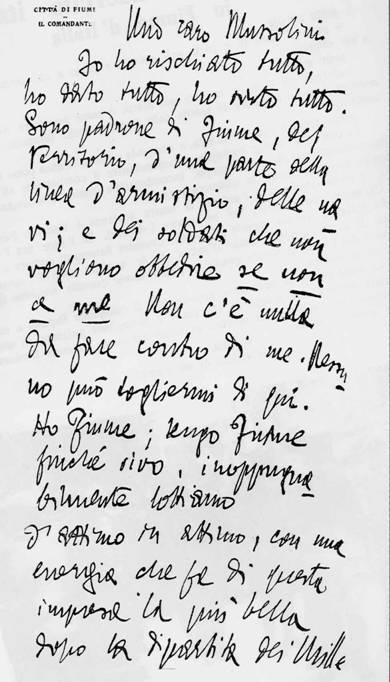 CITTÀ DI FIUME
IL COMANDANTE
Mio caro Mussolini
Io ho rischiato tutto,
ho dato tutto, ho avuto tutto.
Sono padrone di Fiume, del
Territorio, d'una parte della
linea d'armistizio, delle na
vi; e dei soldati che non
vogliono obbedire se non
a me Non c'è nulla
da fare contro di me. Nessu
no può togliermi di qui.
Ho Fiume; tengo Fiume
finché vivo, inoppugna
bilmente
d'attimo in attimo, con una
energia che fa di questa
impresa la più bella
dopo la dipartita dei Mille